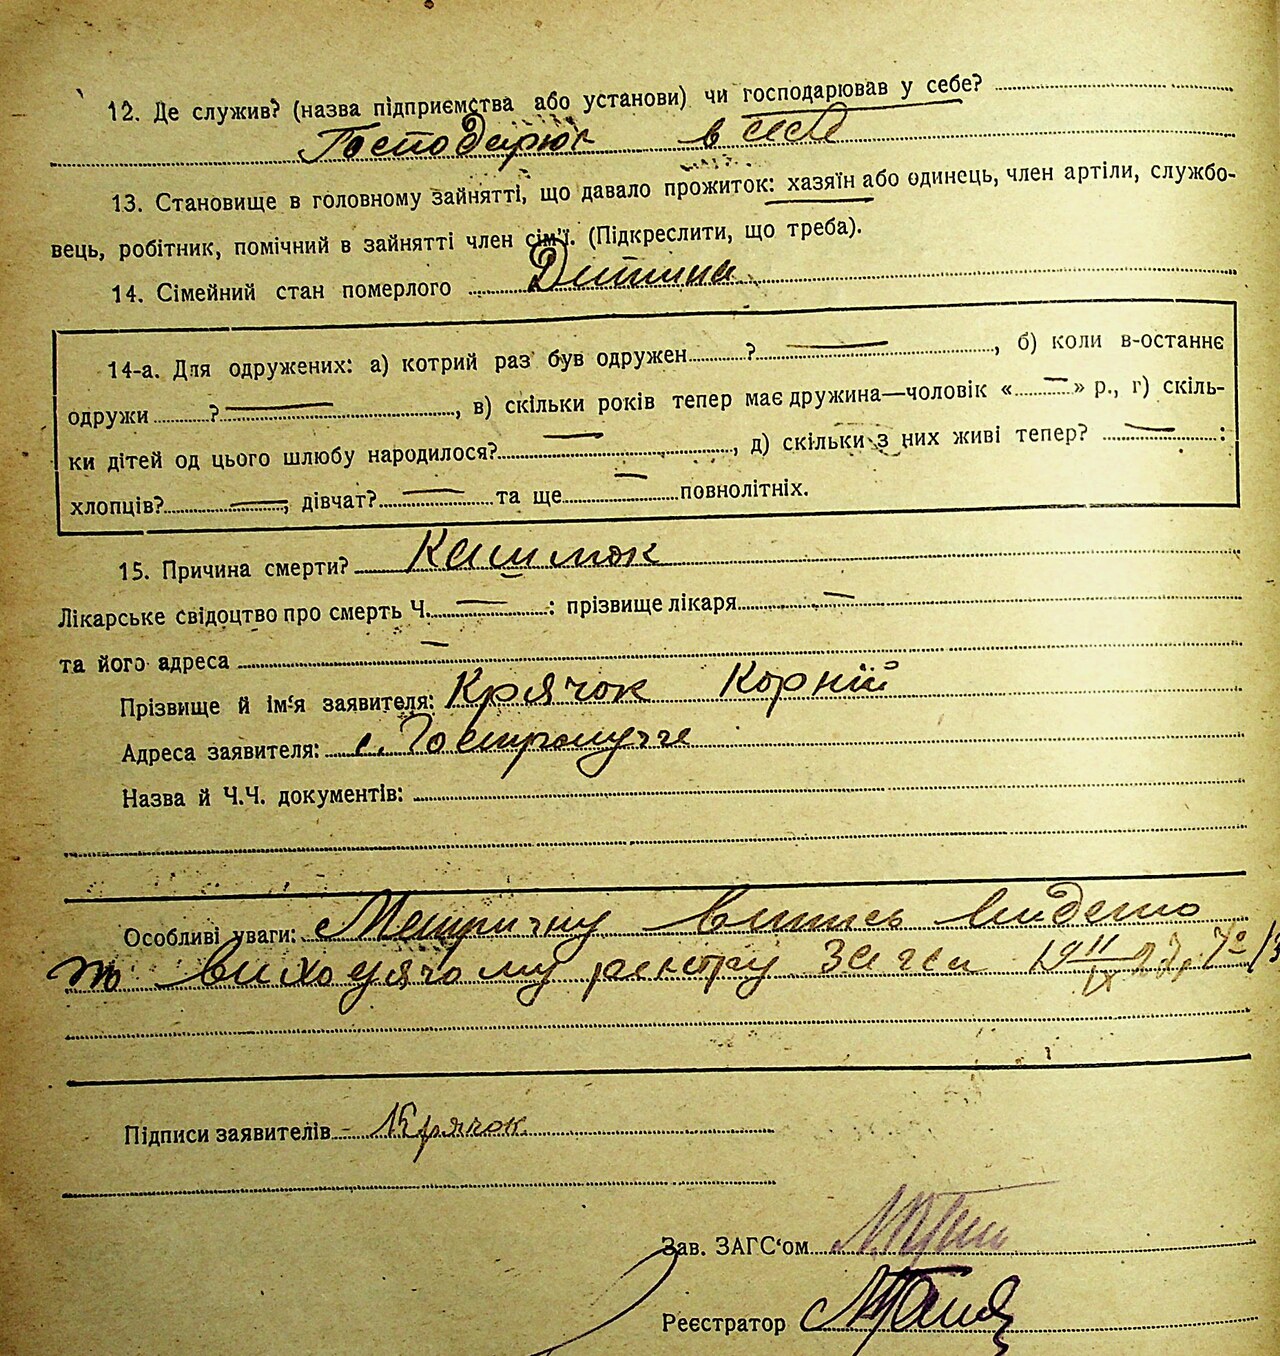 12. Де служив? (назва підприємства або установи) чи господарював у себе?
Господарює в себе
13. Становище в головному зайнятті, що давало прожиток: хазяїн або одинець, член артіли, службо-
вець, робітник, помічний в зайнятті член сім'ї. (Підкреслити, що треба).
14. Сімейний стан померлого Дитина
14-а. Для одружених: а) котрий раз був одружен ? —, б) коли в-останнє
одружи ? —, в) скільки років тепер має дружина—чоловік «—» р., г) скіль-
ки дітей од цього шлюбу народилося? —, д) скільки з них живі тепер? — :
хлопців? —, дівчат? — та ще — повнолітніх.
15. Причина смерти? Кашлюк
Лікарське свідоцтво про смерть Ч. — : прізвище лікаря —
та його адреса —
Прізвище й ім'я заявителя: Крячок Корній
Адреса заявителя: с. Гостролуччє
Назва й Ч.Ч. документів:
Особливі уваги: Метричну випись видано
по виходячому реєстру Загса 19 11/IX 27
Підписи заявителів - Крячок
Зав. ЗАГС'ом
Реєстратор